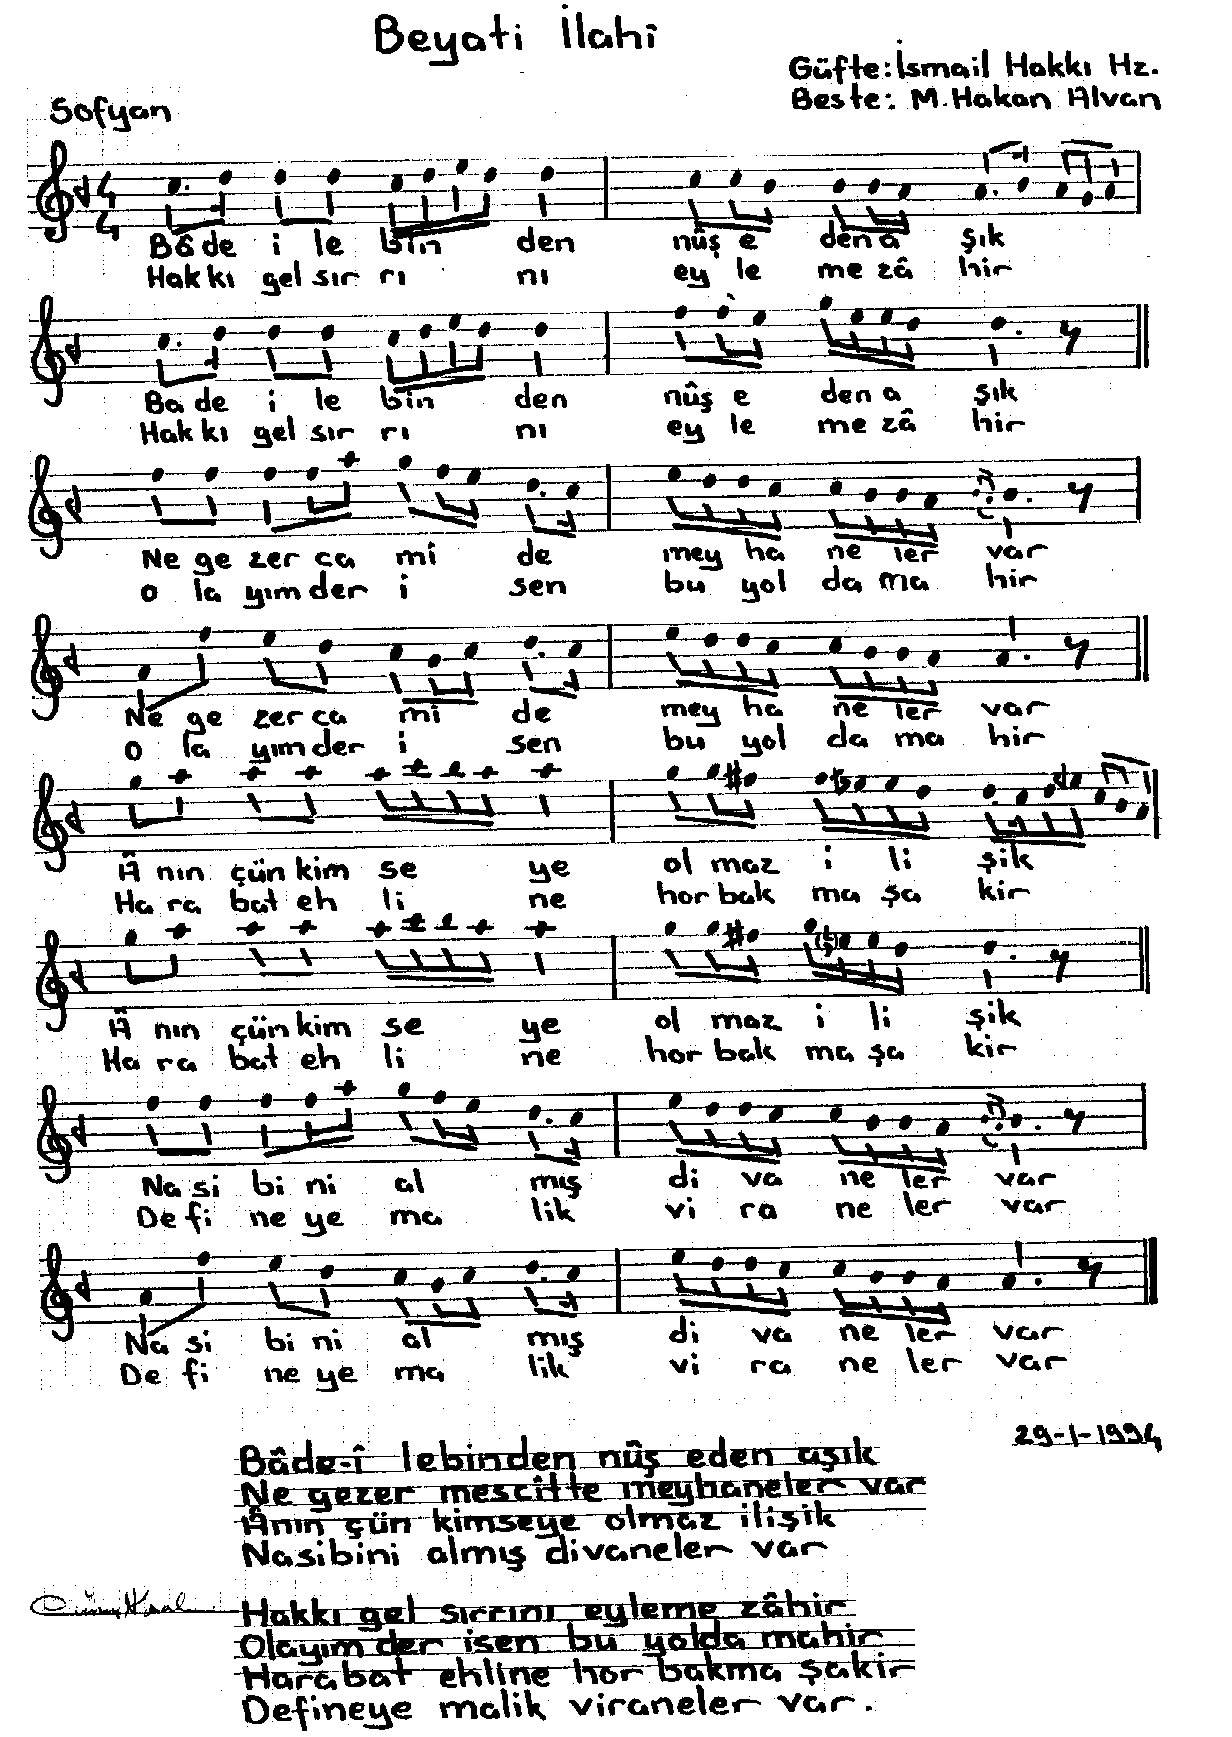 Beyati İlahî
Güfte: İsmail Hakkı Hz.
Beste: M. Hakan Alvan
Sofyan
4
4
Bâ de i le bin den nûş e den a şık
Hak kı gel sır rı nı ey le me zâ hir
Ba de i le bin den nûş e den a şık
Hak kı gel sır rı nı ey le me zâ hir
Ne ge zer ca mi de mey ha ne ler var
o la yım der i sen bu yol da ma hir
Ne ge zer ca mi de mey ha ne ler var
o la yım der i sen bu yol da ma hir
 nın çün kim se ye ol maz i li şik
Ha ra bat eh li ne hor bak ma şa kir
 nın çün kim se ye ol maz i li şik
Ha ra bat eh li ne hor bak ma şa kir
Na si bi ni al mış di va ne ler var
De fi ne ye ma lik vi ra ne ler var
Na si bi ni al mış di va ne ler var
De fi ne ye ma lik vi ra ne ler var
29-1-1994
Bâde-î lebinden nûş eden aşık
Ne gezer mescitte meyhaneler var
Ânın çün kimseye olmaz ilişik
Nasibini almış divaneler var
Hakkı gel sırrını eyleme zâhir
Olayım der isen bu yolda mahir
Harabat ehline hor bakma şakir
Defineye malik viraneler var.